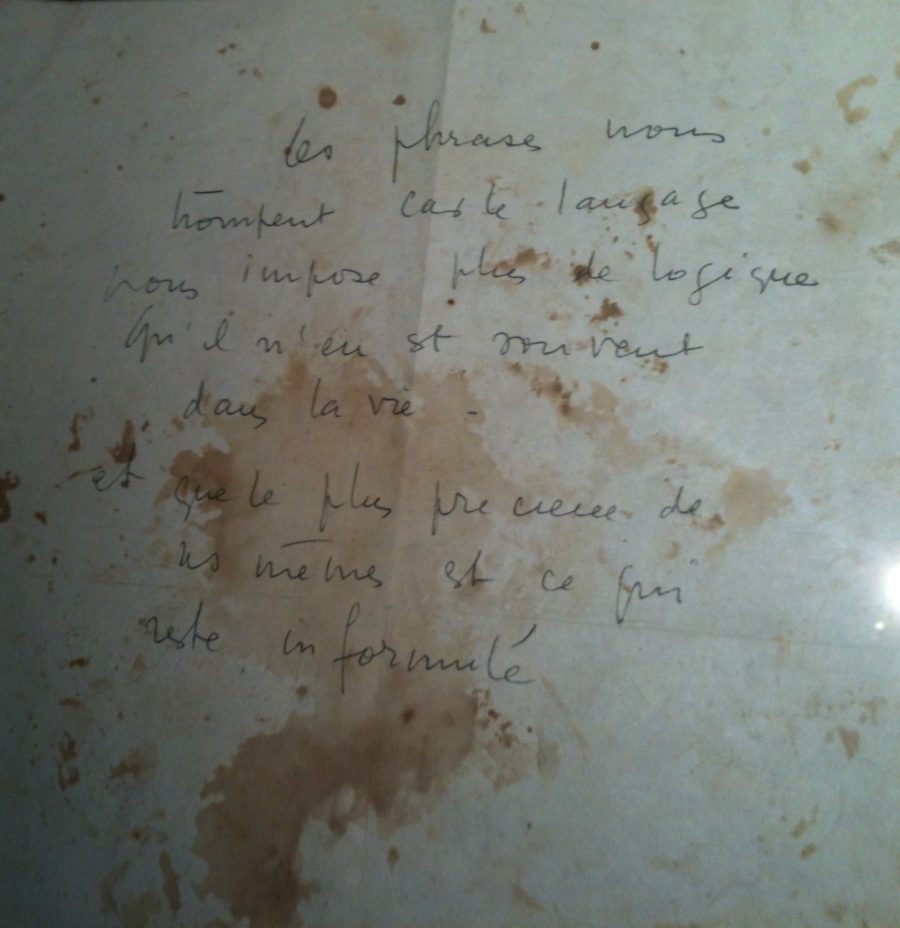 Les phrases nous
trompent car le langage
nous impose plus de logique
Qu'il n'en est souvent
dans la vie -
et que le plus precieux de
ns mêmes est ce qui
reste informulé